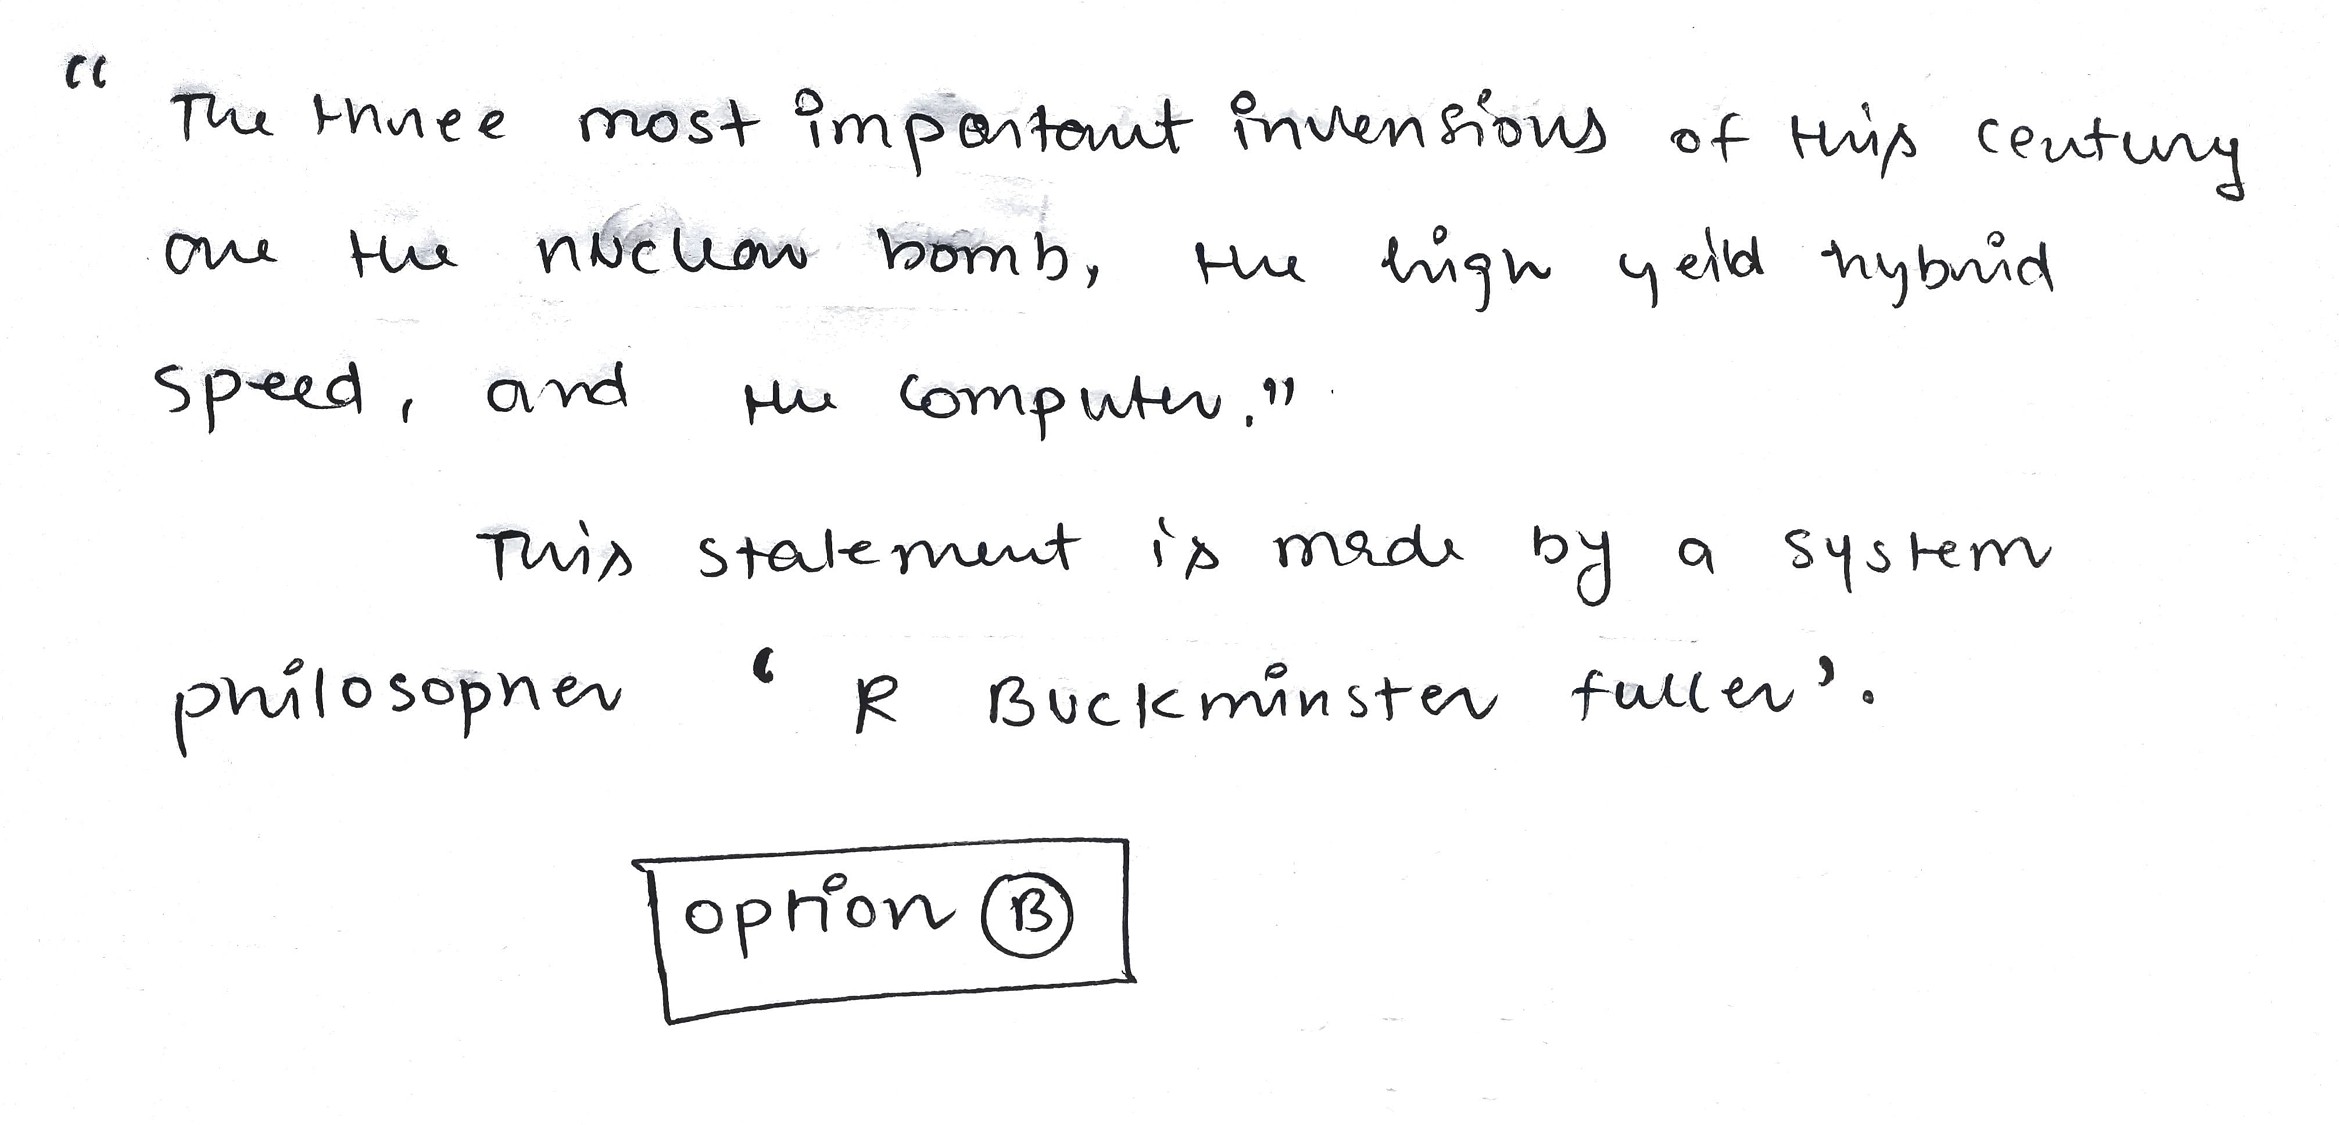 “ The three most important invensions of this century
are the nuclear bomb, the high yeild hybrid
speed, and the computer.”
This statement is made by a system
philosopher ‘ R Buckminster fuller’.
option B